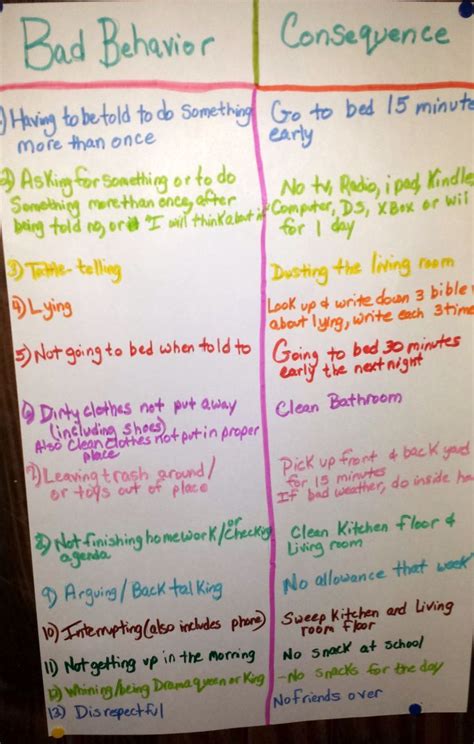 Bad Behavior
Consequence
1) Having to be told to do something
more than once
Go to bed 15 minute
early
2) Asking for something or to do
Something more than once, after
being told no, or "I will think about it
No tv, Radio, ipad, Kindle
Computer, DS, XBox or wii
for 1 day
3) Tattle-telling
Dusting the living room
4) Lying
Look up & write down 3 bible
about lying, write each 3 time
5) Not going to bed when told to
Going to bed 30 minutes
early the next night
6) Dirty clothes not put away
(including shoes)
Also Clean clothes not put in proper
place
Clean Bathroom
7) Leaving trash around/
or toys out of place
Pick up front & back yard
for 15 minutes
If bad weather, do inside hou
8) Not finishing homework/or Checking
agenda
Clean Kitchen floor &
Living room
9) Arguing/Back talking
No allowance that week
10) Interrupting (also includes phone)
Sweep Kitchen and Living
room floor
11) Not getting up in the morning
No snack at school
12) Whining/being Drama queen or King
-No snacks for the day
13) Disrespectful
No friends over